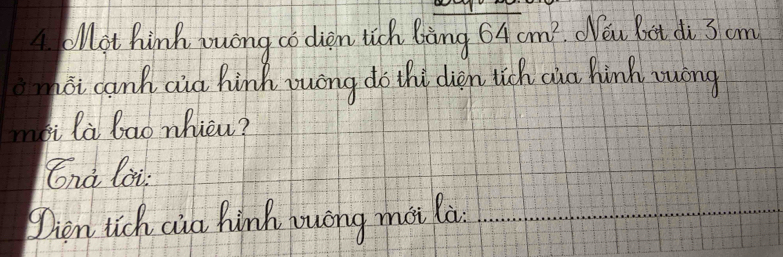 4. Một hình vuông có diện tích bằng 64 cm². Nếu bớt đi 3 cm
ở mỗi cạnh của hình vuông đó thì diện tích của hình vuông
mới là bao nhiêu?
Trả lời:
Diện tích của hình vuông mới là: ....................